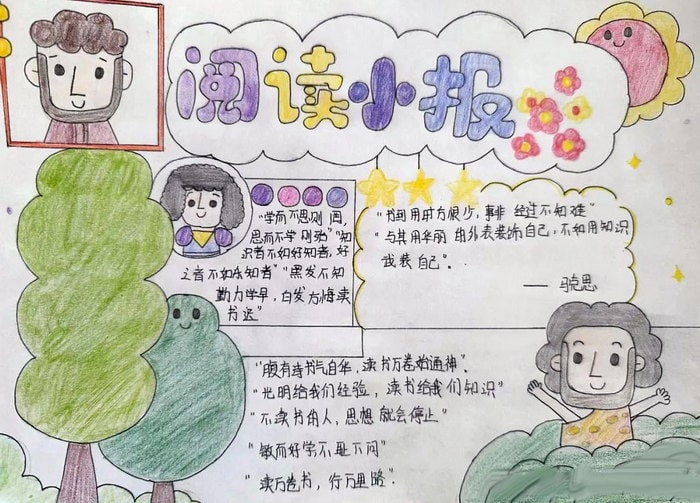 阅读小报
"学而不思则罔,
思而不学则殆" "知
识者不如好知者,好
之者不如乐知者" "黑发不知
勤力学早,白发方悔读
书迟"
"书到用时方恨少,事非经过不知难"
"与其用华丽的外衣装饰自己,不如用知识
武装自己"。
——马克思
"腹有诗书气自华,读书万卷始通神"。
"光明给我们经验,读书给我们知识"
"不读书的人,思想就会停止"
"敏而好学不耻下问"
"读万卷书,行万里路"。